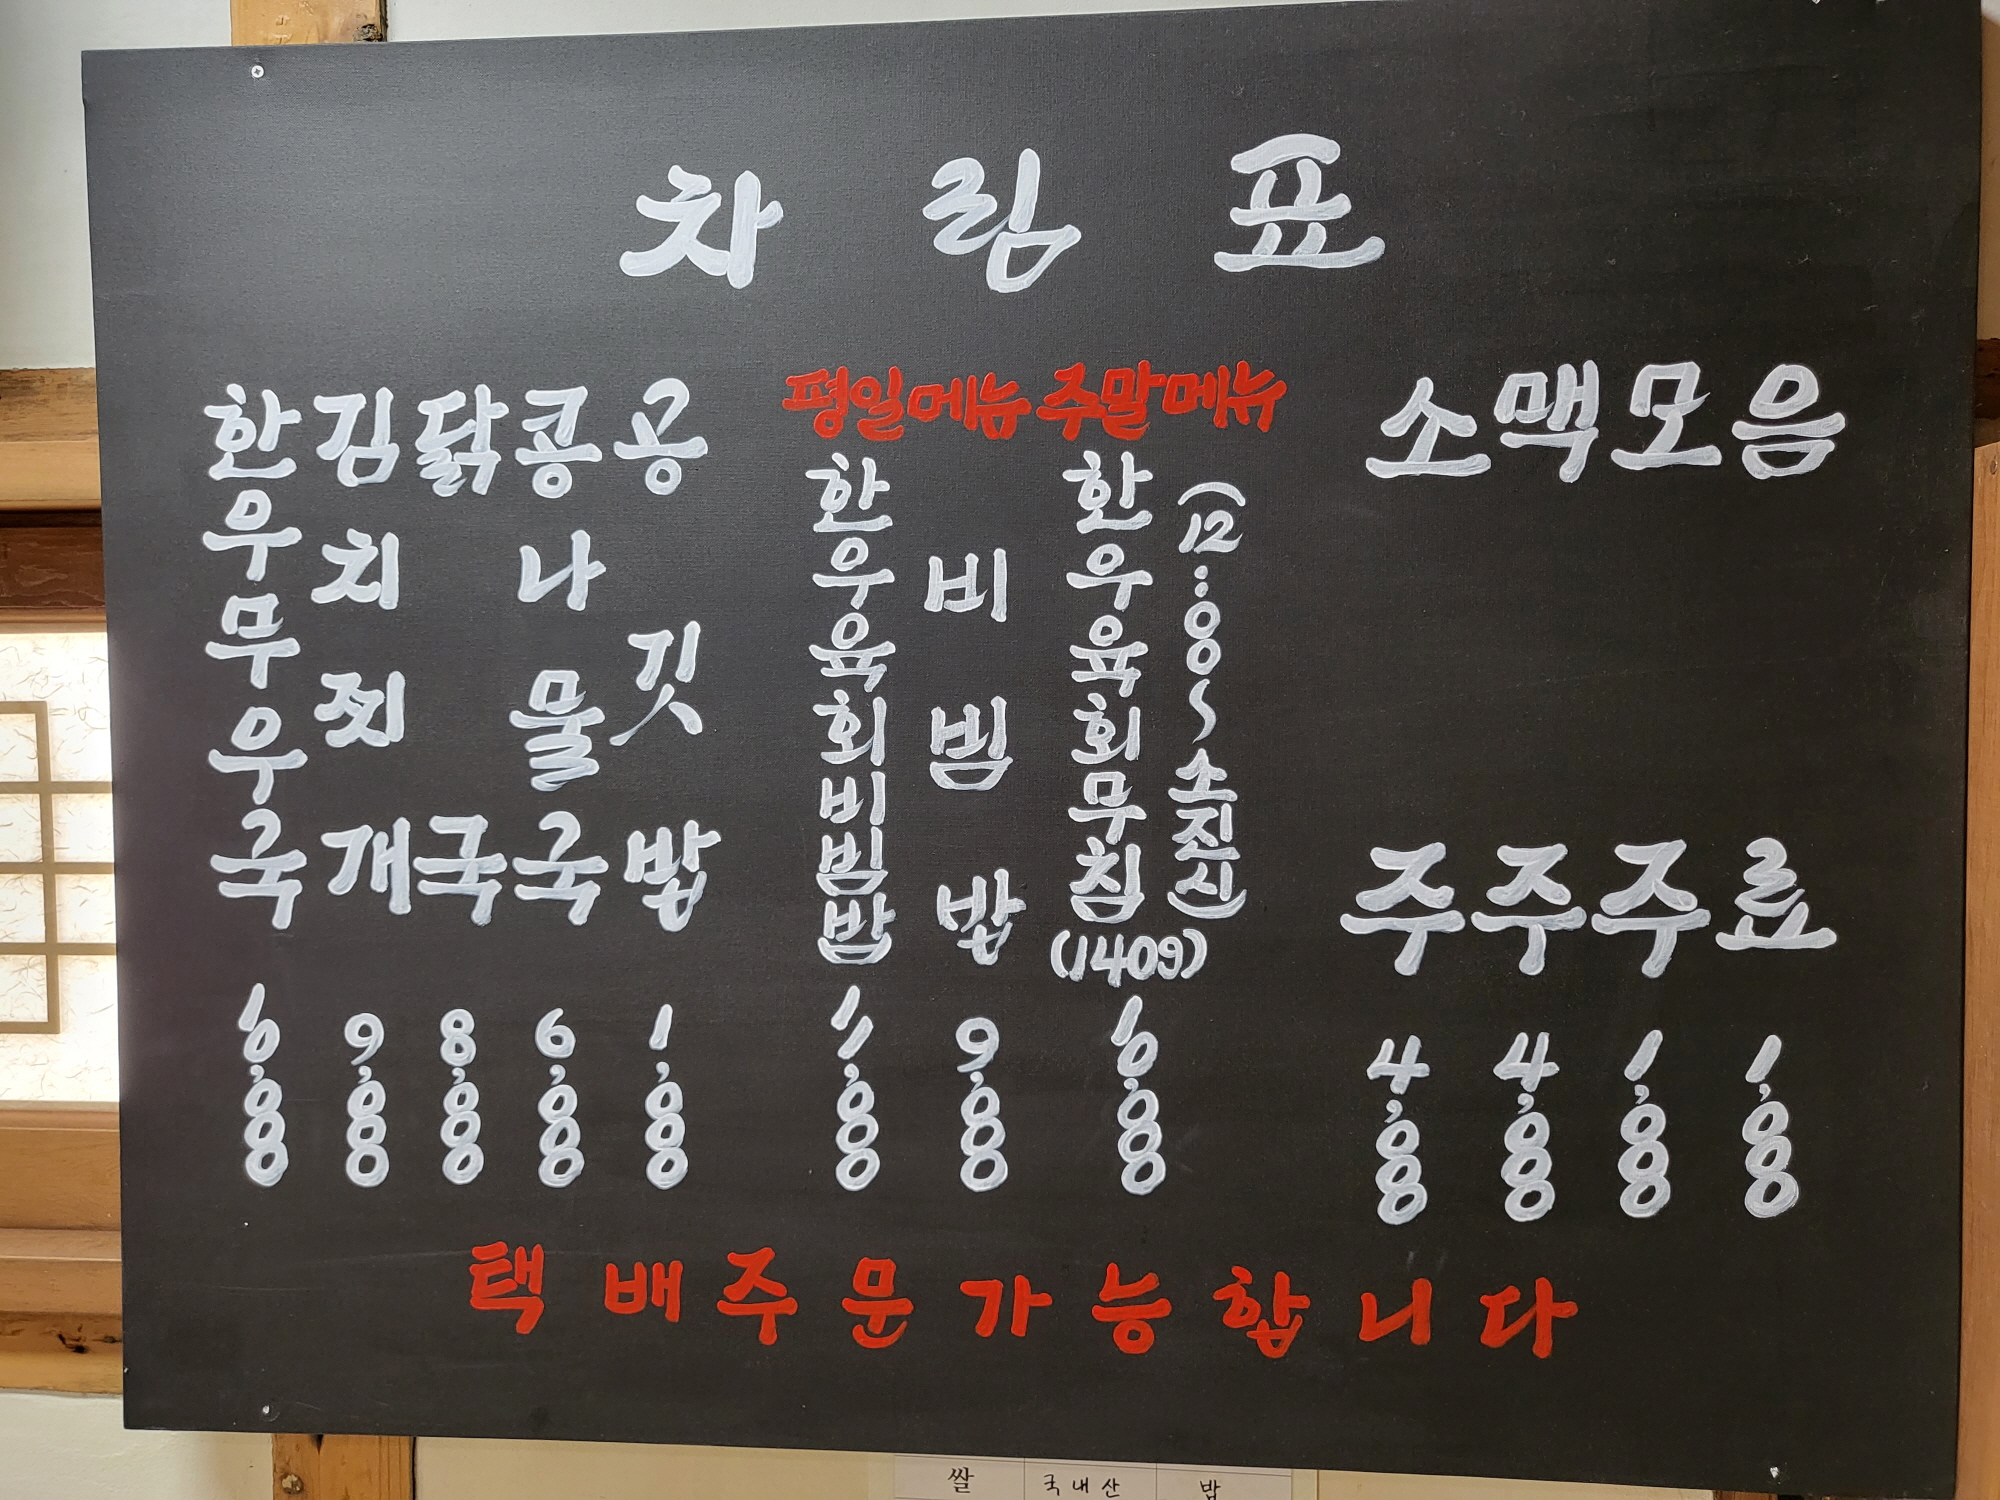 차림표
한우무우국 10,000
김치찌개 9,000
닭국 8,000
콩나물국 6,000
공깃밥 1,000
평일메뉴
한우육회비빔밥 11,000
비빔밥 9,000
주말메뉴
한우육회무침 (140g) 10,000
(12:00~소진시)
소주 4,000
맥주 4,000
모주 1,000
음료 1,000
택배주문가능합니다
쌀 국내산 밥